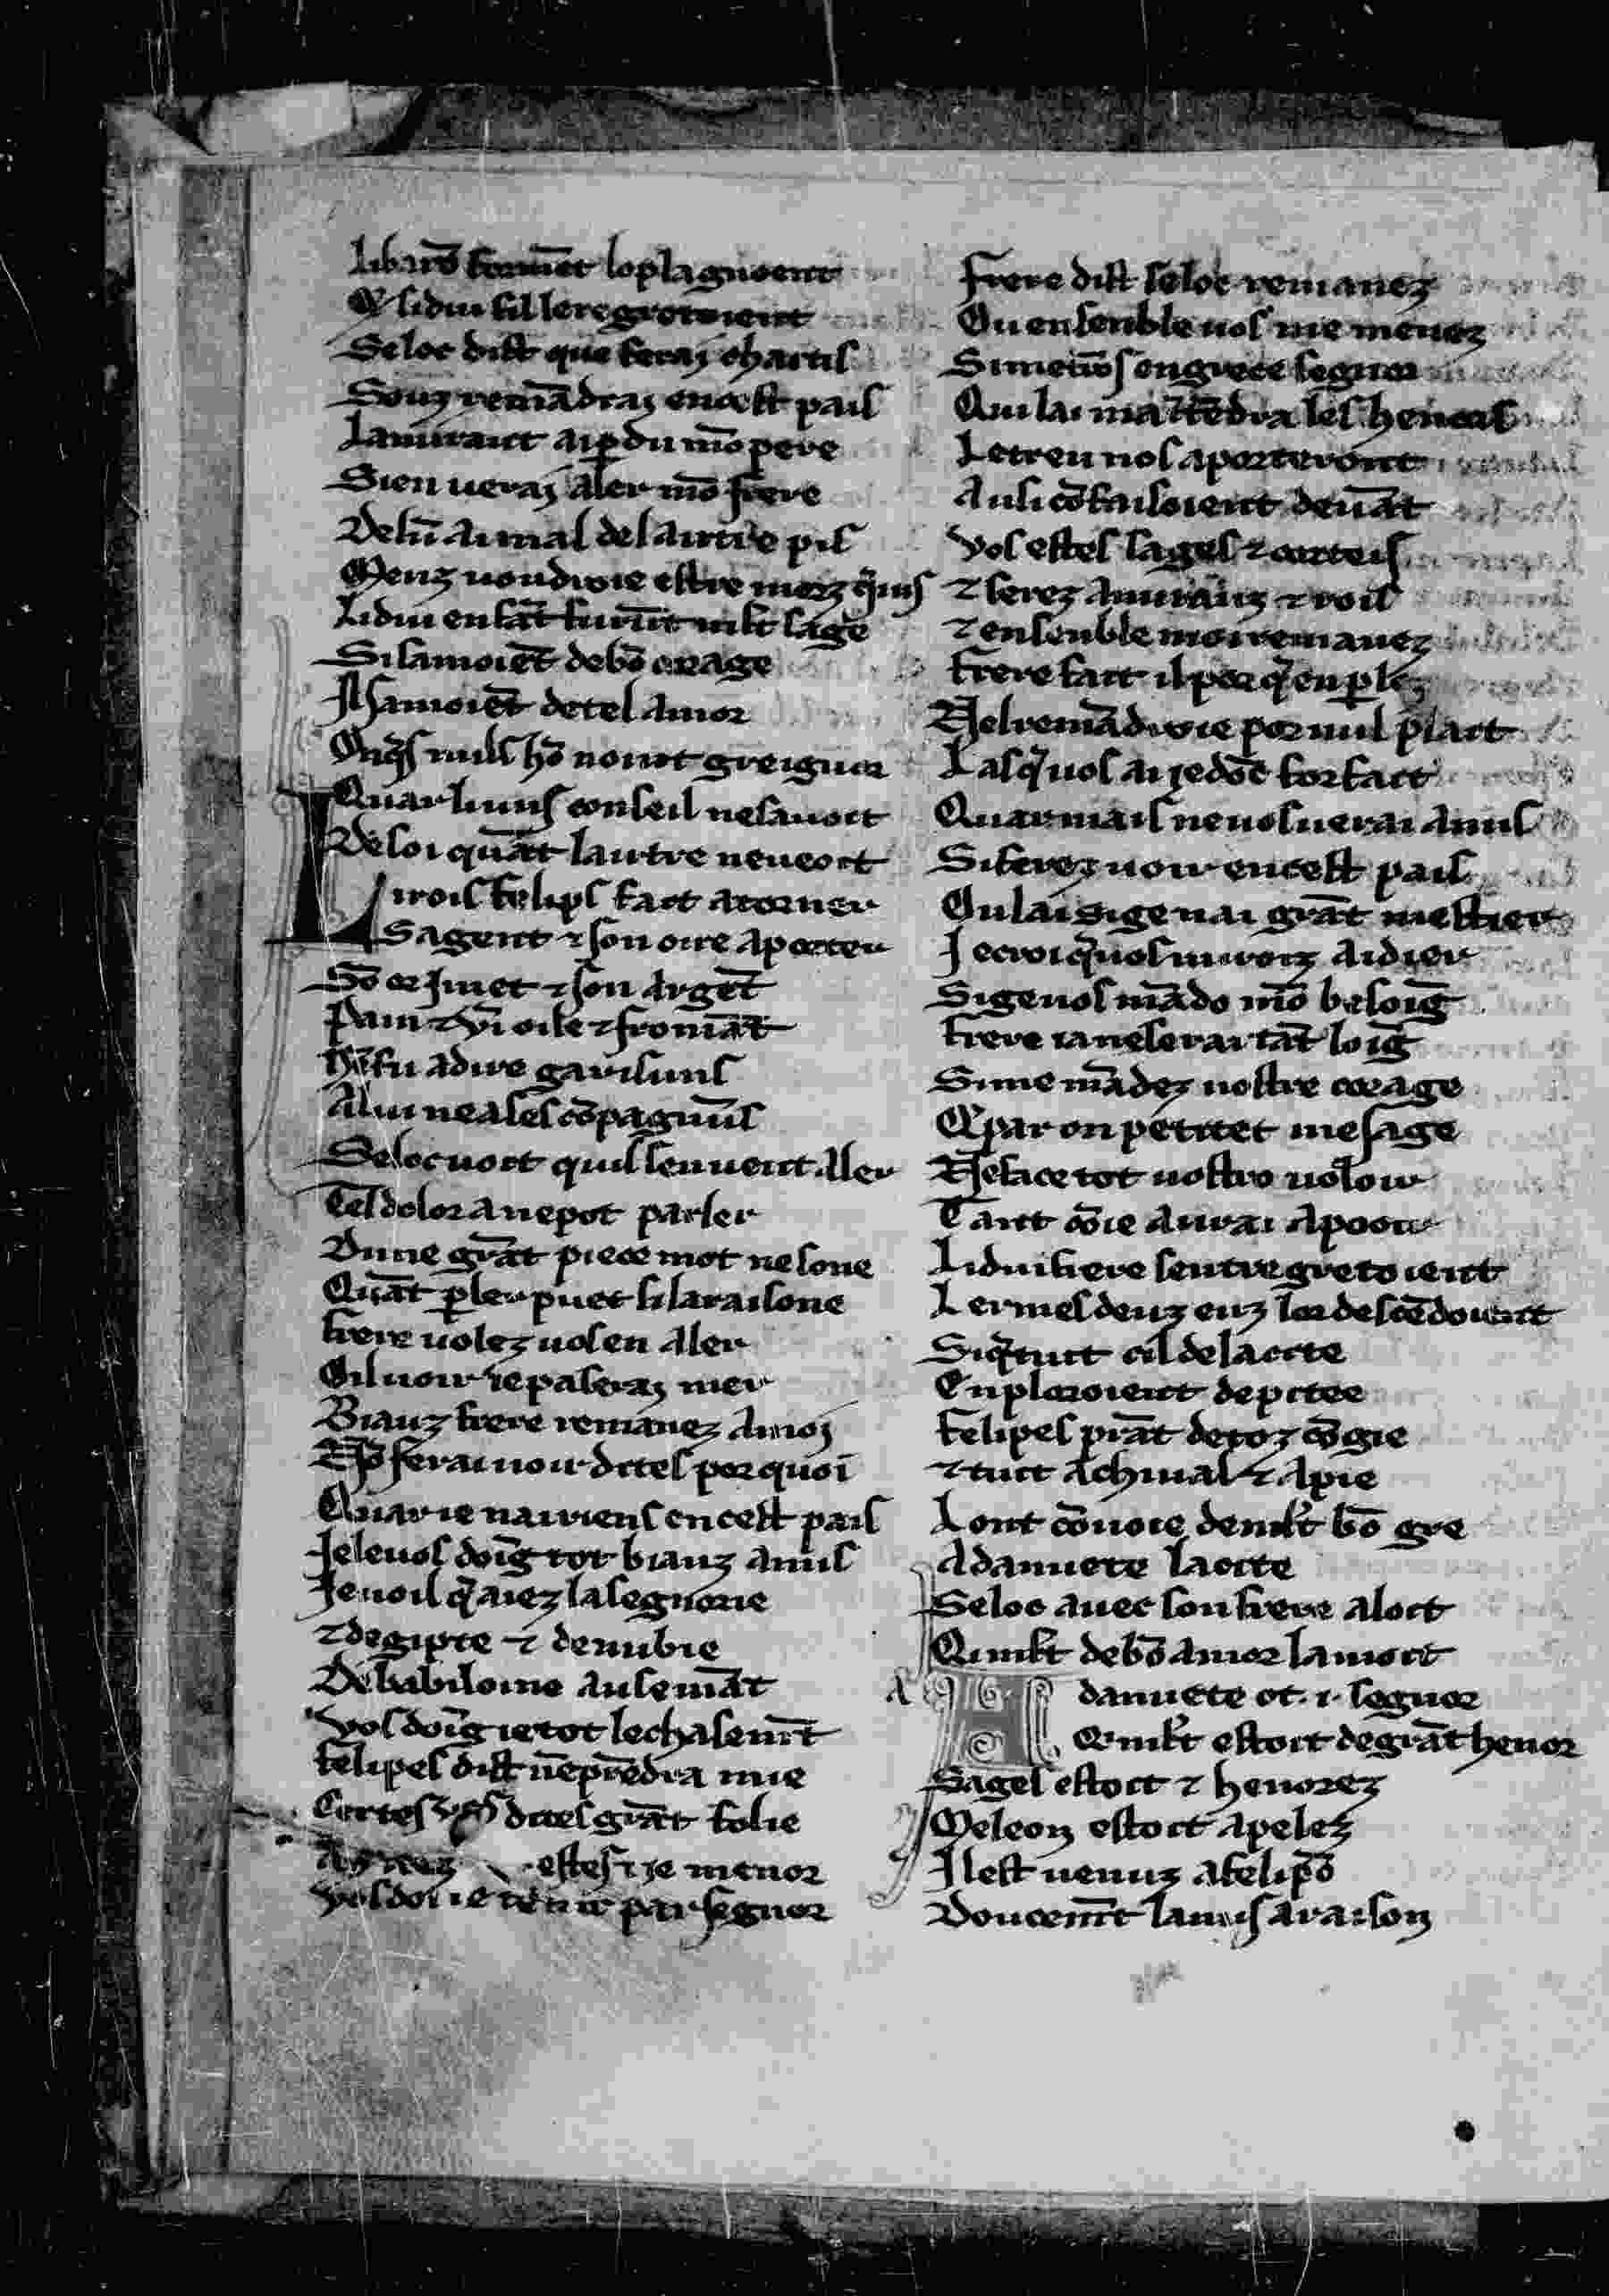 Li barō formēt lo plagnoient
Q̄ li dui fil le regretoient
Seloc dist que ferai chaitis
Senz remādrai en cest pais
Lamiraut ai ꝑdu mō pere
Si en uerai aler mō frere
De lū ai mal de lautre pis
Menz uoudroie estre morz q̄ uis
Li dui enfāt furūt mlt sage
Si samoiēt de bō corage
Il samoiēt de tel amor
Onq̄s nuls hō no uit greignor
Quar li uns conseil ne sauoit
De soi quāt lautre ne ueoit
Li rois felips fait atorner
Sa gent ⁊ son oire aporter
So or i met ⁊ son argēt
Pain ⁊ uī oile ⁊ fromāt
Seloc uoit quil sen uout aler
Tel dolor a ne pot parler
Une grāt piece mot ne sone
Quāt ꝑler puet si laraisone
Frere uolez uos en aler
Oil uoir ie paserai mer
Biauz frere remanez a moi
Nō ferai uoir dites por quoi
Quar ie nai riens en cest pais
Ie le uos doīg tot biauz amis
Ie uoil q̄ aiez la segnorie
⁊ degipte ⁊ de nubie
De babiloine ausemāt
Vos doīg ie tot le chasemt̄
Felipes dist nē prēdra mie
Certes dites grāt folie
estes ⁊ ie menor
Vos doi ie tenir par segnor
Frere dist seloc remanez
Ou ensenble uos me menez
Si metrōs en grece segnor
Qui lai māttēdra les henors
Le treu nos aporteront
Ausi cō faisoient deuāt
Vos estes sages ⁊ corteis
⁊ serez amirauz ⁊ rois
⁊ ensenble moi remanez
Frere fait il por q̄ en ꝑlez
Ne remādroie por nul plait
Las q̄ uos ai ie dōc forfait
Quar mais ne uos uerai amis
Si ferez uoir en cest pais
Ou lai si ge nai grāt mestier
Ie croi q̄ uos miroiz aidier
Si ge uos mādo mō besoīg
Frere ia ne serai tāt loīg
Si me mādez uostre corage
Q̄ par on petitet mesage
Ne face tot uostro uoloir
Tant cōie aurai a pooir
Li dui frere sentregretoient
Lermes de uz euz lor descēdoient
Si q̄ tuit cil de la cite
En ploroient de pitee
Felipes prāt de toz cōgie
⁊ tuit a cheual ⁊ a pie
Lont cōuoie de mlt bō gre
A damiete la cite
Seloc auec son frere aloit
Qui mlt de bō amor lamoit
A damiete ot .i. segnor
Qui mlt estoit de grāt henor
Sages estoit ⁊ henorez
Meleon estoit apelez
Il est uenuz a felipō
Doucemt̄ la mis a raison